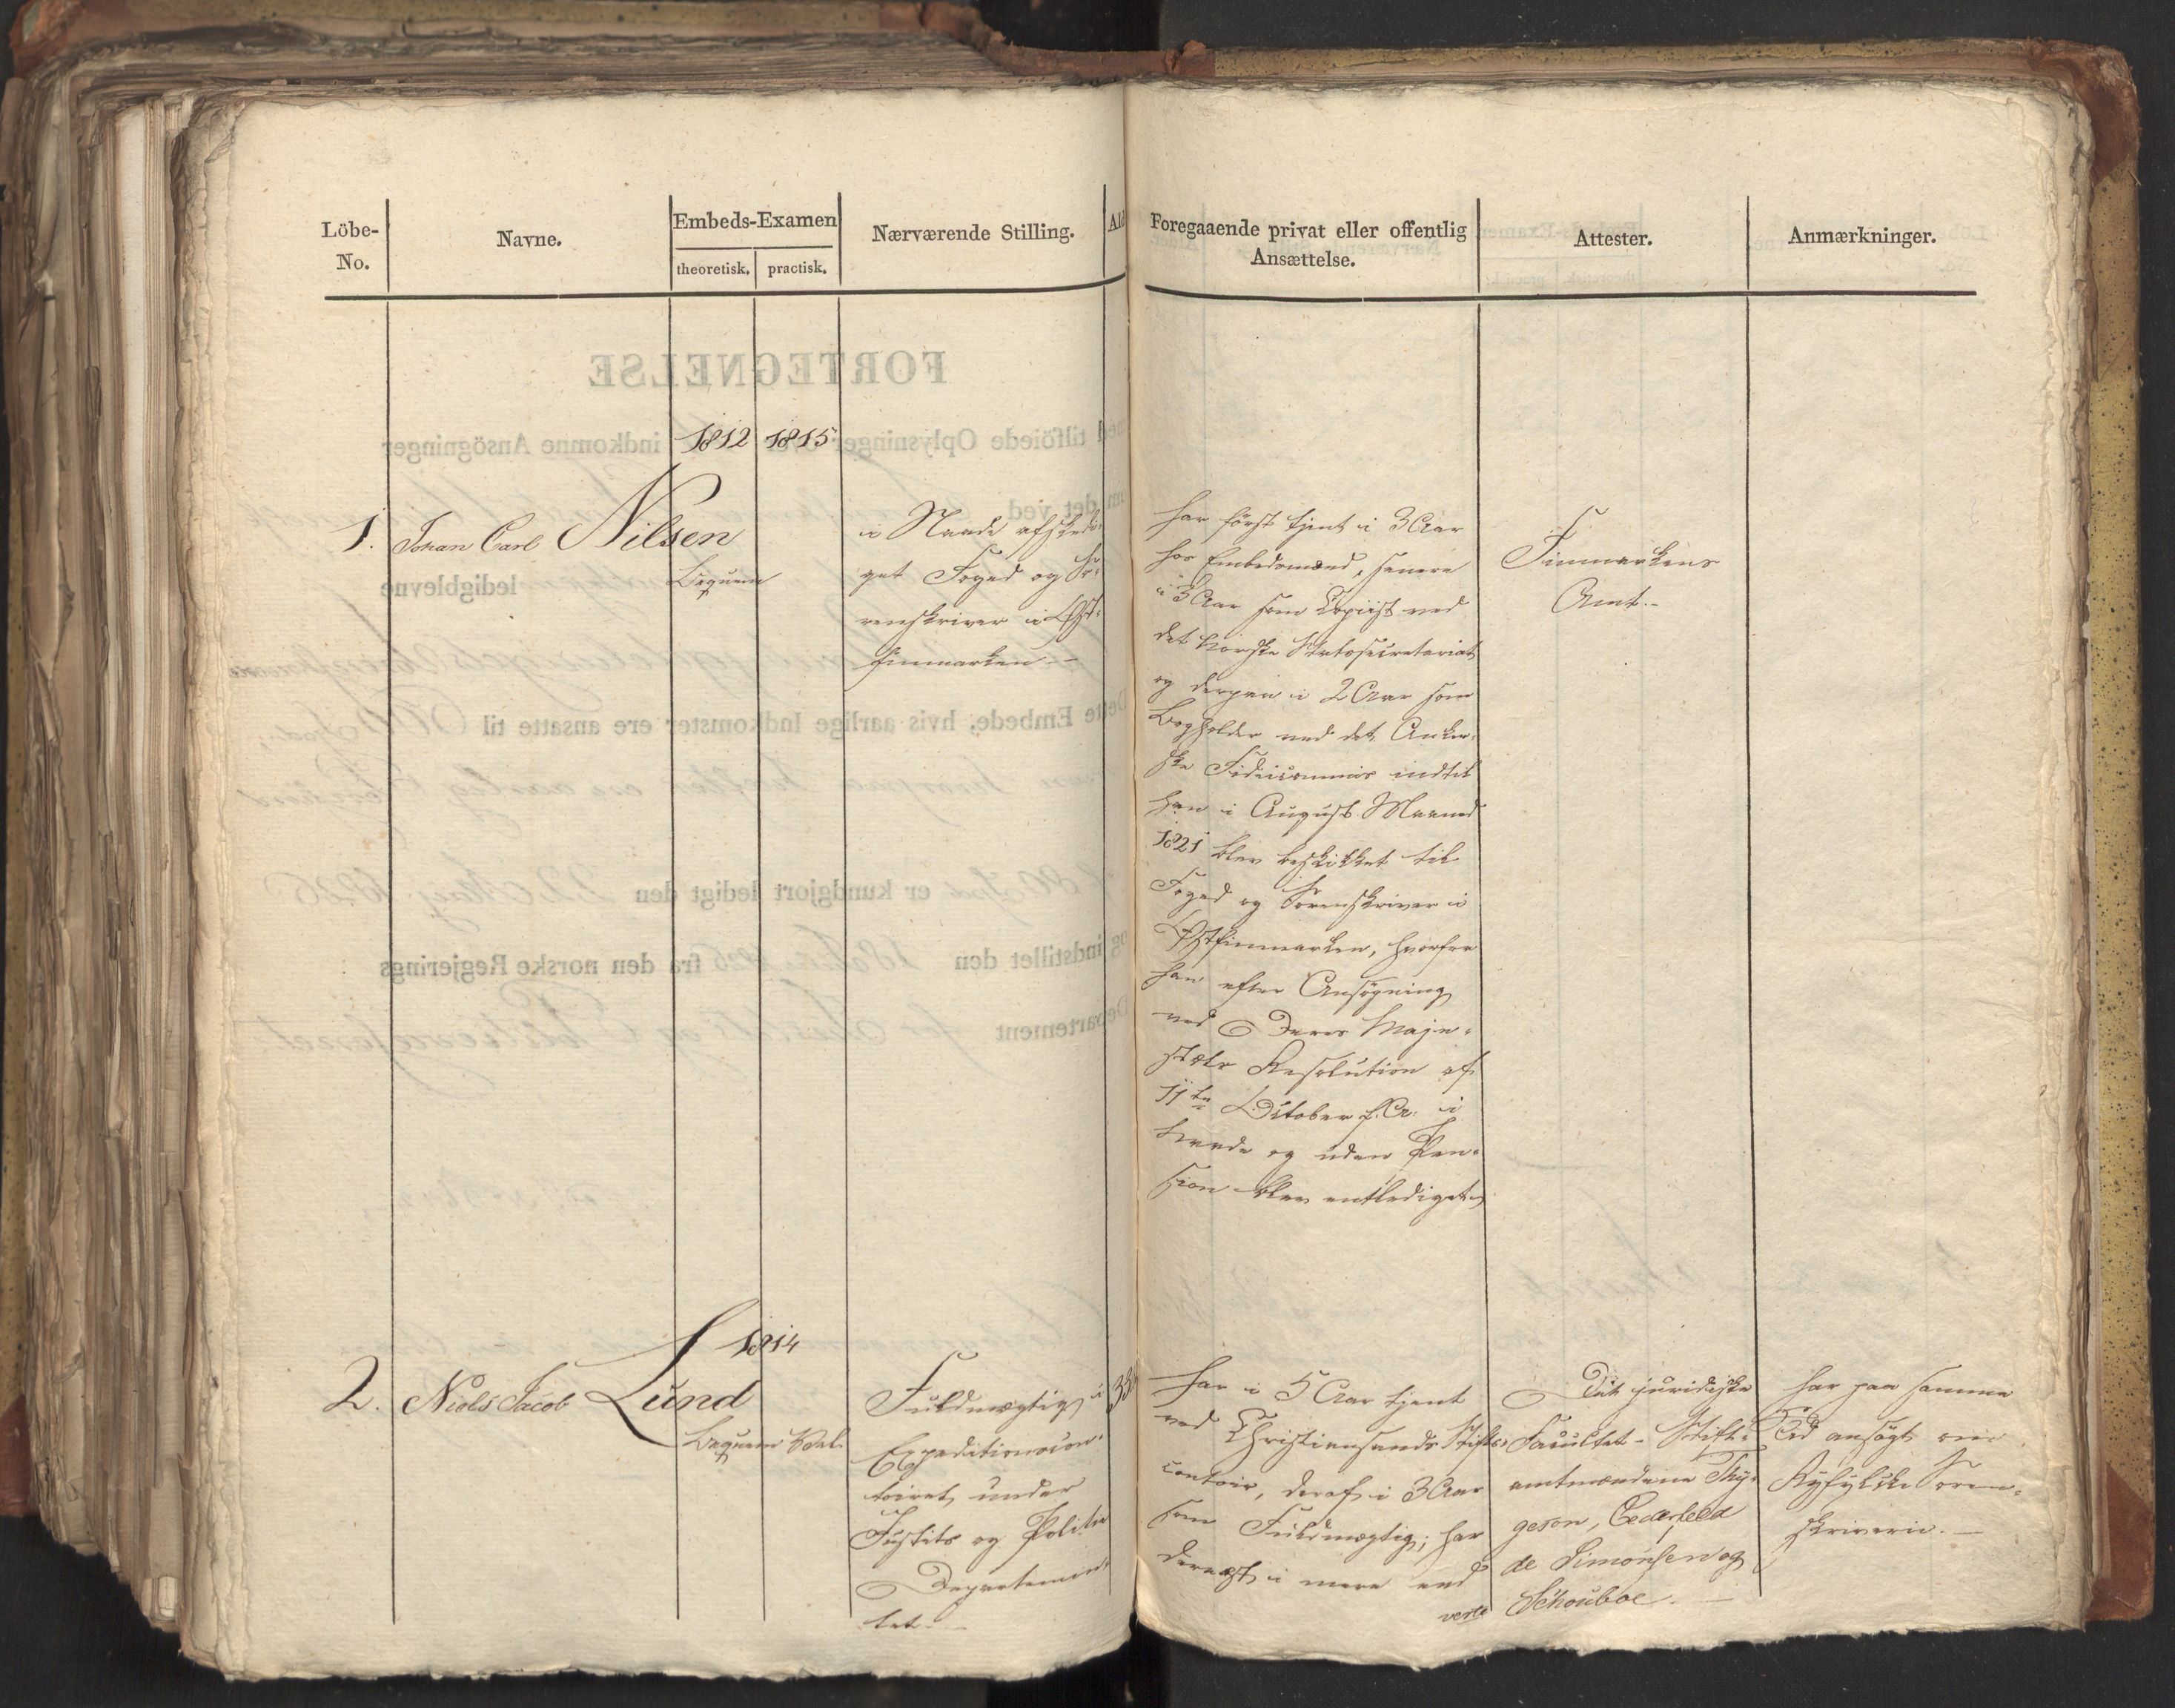 Löbe-
No.
Navne.
Embeds-Examen
theoretisk. practisk.
Nærværende Stilling.
Foregaaende privat eller offentlig
Ansættelse.
Attester.
Anmærkninger.
1812 1815
1. Johan Carl Nilsen
Beqvem
i Naade afskedi-
get Foged og So-
renskriver i Øst-
finmarken -
har först tjent i 3 Aar
hos Embedsmænd, senere
i 3 Aar som Copiist ved
det norske Statssecretariat
og derpaa i 2 Aar som
Bogholder ved det Anker-
ske Fideicommis indtil
han i August Maaned
1821 blev beskikket til
Foged og Sorenskriver i
Østfinmarken, hvorfra
han efter Ansøgning
ved Deres Maje-
stæts Resolution af
11te October f. A. i
Naade og uden Pen-
sion blev entlediget
Finmarkens
Amt.-
1814
2. Niels Jacob Lund
Beqvem Vel
Fuldmægtig i
Expeditionscon-
toiret under
Justits og Politie
Departemen-
tet -
har i 5 Aar tjent
ved Christiansands Stifts-
contoir, deraf i 3 Aar
som Fuldmægtig; har
dernæst i mere end
verte
Det juridiske
Facultet - Stift-
amtmændene Thy-
geson, Cederfeld
de Simonsen og
Schouboe. -
har paa samme
Tid ansøgt om
Ryfylke Soren-
skriverie. -
FORTEGNELSE
med tilföiede Oplysninger over indkomne Ansögninger
det ved
ledigblevne
Dette Embede, hvis aarlige Indkomster ere ansatte til
er kundgjort ledigt den 22 May 1826
og indstillet den fra den norske Regjerings
Departement for Justits og Politievæsenet